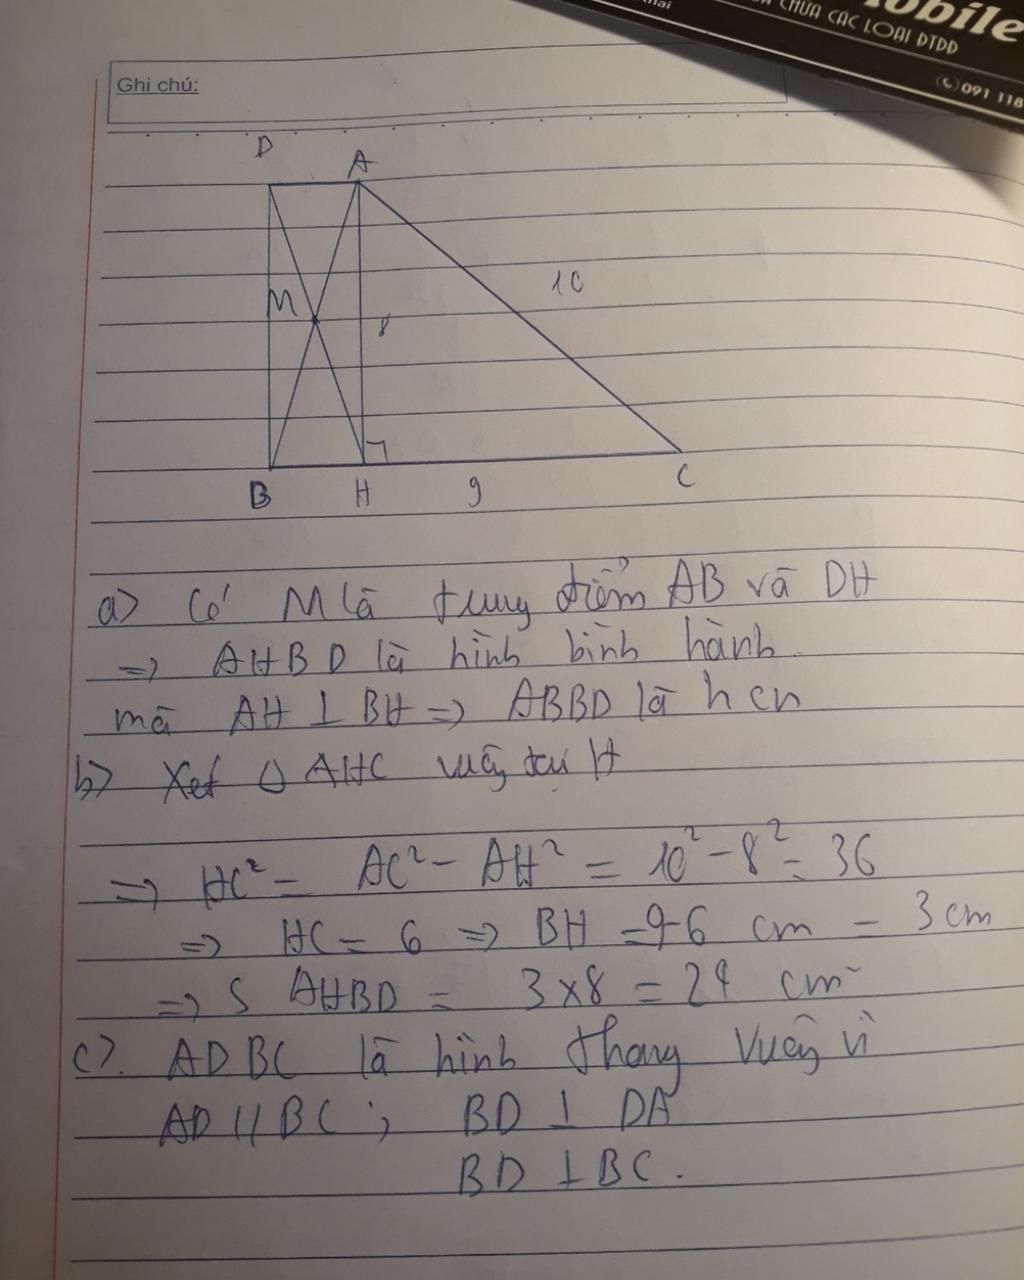 obile
CHỮA CÁC LOẠI ĐTDĐ
091 118
Ghi chú:
D
A
10
M
8
B
H
9
C
a) Có M là trung điểm AB và DH
=> AHBD là hình bình hành.
mà AH ⊥ BH => ABBD là hcn
b) Xét Δ AHC vuông tại H
=> HC² = AC² - AH² = 10² - 8² = 36
=> HC = 6 => BH = 9-6 cm = 3 cm
=> S AHBD = 3x8 = 24 cm²
c). ADBC là hình thang vuông vì
AD // BC ; BD ⊥ DA
BD ⊥ BC.